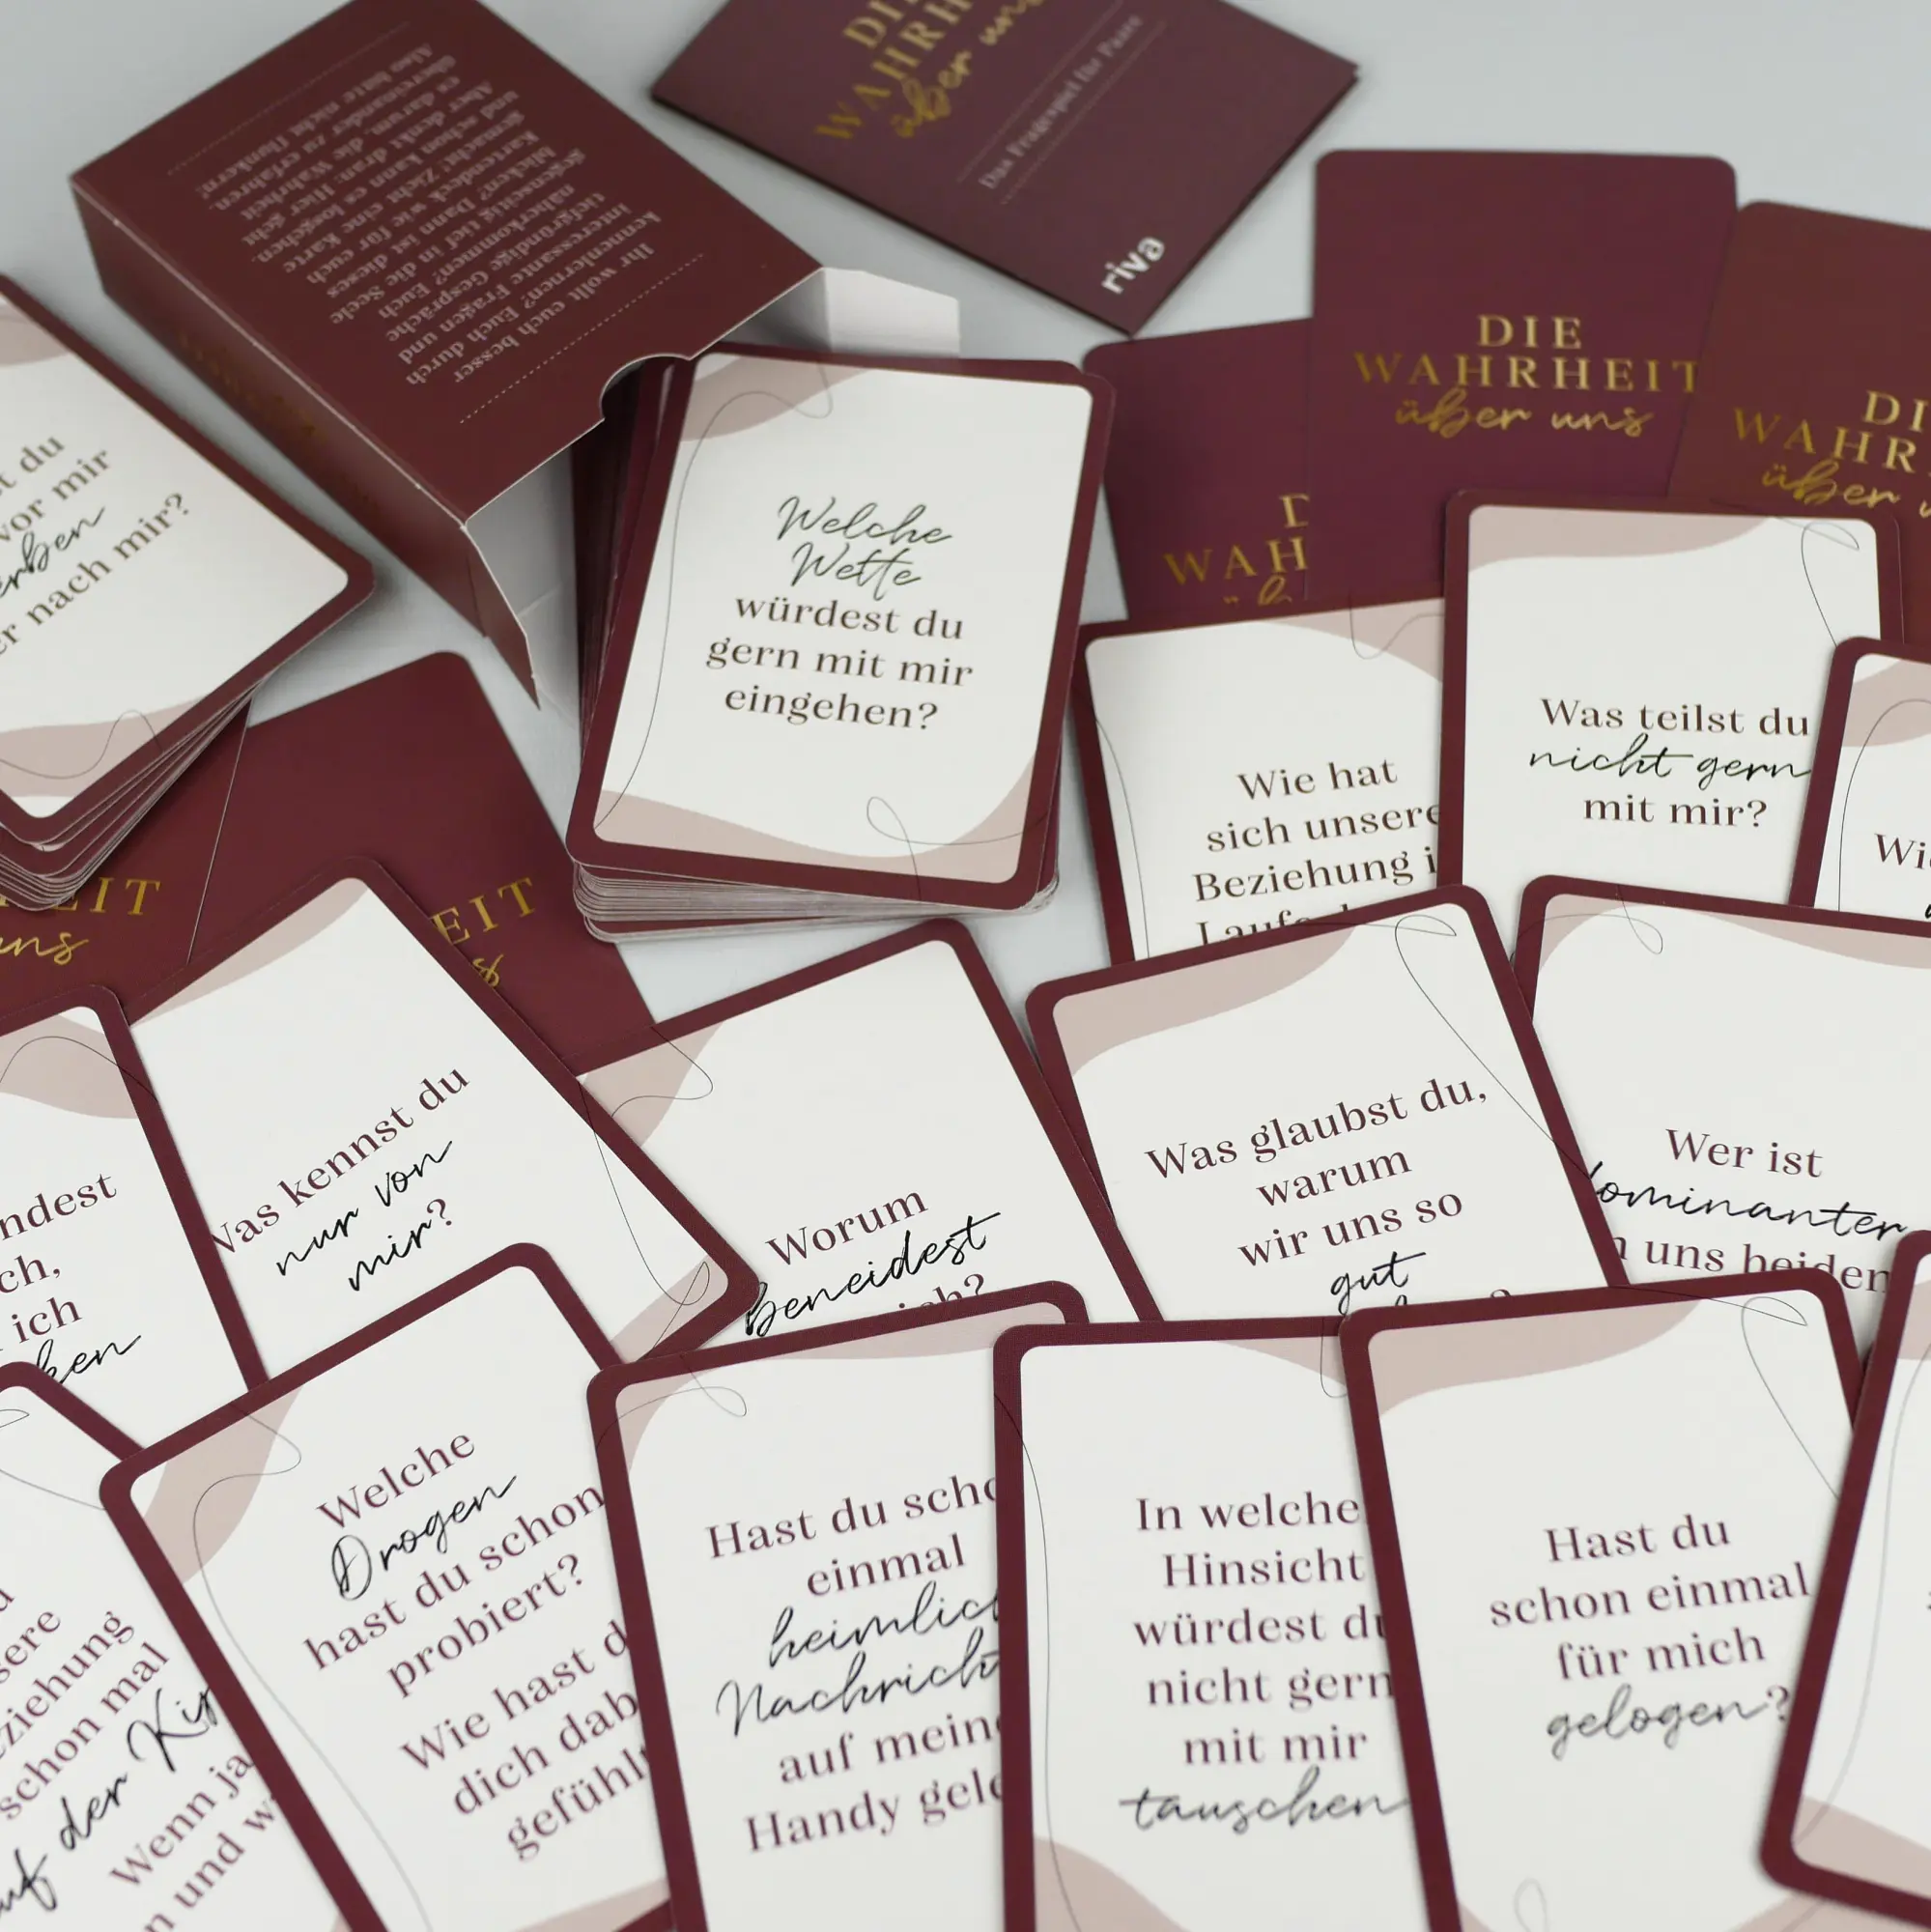 Ihr wollt euch besser
kennenlernen? Euch durch
interessante Fragen und
tiefgründige Gespräche
näherkommen? Euch
gegenseitig tief in die Seele
blicken? Dann ist dieses
Kartendeck wie für euch
gemacht! Zieht eine Karte
und schon kann es losgehen.
Aber denkt dran: Hier geht
es darum, die Wahrheit
übereinander zu erfahren.
Also bitte nicht flunkern!
DIE
WAHRH
über uns
Das Fragespiel für Paare
riva
DIE
WAHRHEIT
über uns
DI
WAHR
über
D
WAH
t du
vor mir
er nach mir?
Welche
Wette
würdest du
gern mit mir
eingehen?
Wie hat
sich unsere
Beziehung i
Laufe
Was teilst du
nicht gern
mit mir?
Wi
EIT
uns
EIT
s
ndest
ch,
ich
ken
Was kennst du
nur von
mir?
Worum
beneidest
ich?
Was glaubst du,
warum
wir uns so
gut
?
Wer ist
dominanter
n uns beiden
sere
ziehung
schon mal
auf der Kip
Wenn ja
n und w
Welche
Drogen
hast du schon
probiert?
Wie hast d
dich dab
gefühlt
Hast du scho
einmal
heimlich
Nachricht
auf mein
Handy gele
In welcher
Hinsicht
würdest du
nicht gern
mit mir
tauschen
Hast du
schon einmal
für mich
gelogen?